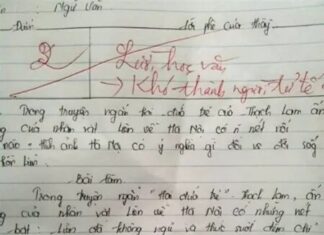 : Ngữ Văn
Điểm Lời phê của thầy
2 Lười học văn
→ Khó thành người tử tế
Trong truyện ngắn Hai đứa trẻ của Thạch Lam ấn
của nhân vật Liên về Hà Nội có nét nổi
nào: Hình ảnh Hà Nội có ý nghĩa gì đối với đời sống
Liên.
Bài làm
Trong truyện ngắn "Hai đứa trẻ" Thạch Lam, ấn
của nhân vật Liên về Hà Nội có những nét
bật: Liên đã không ngủ và thức suốt đêm chỉ